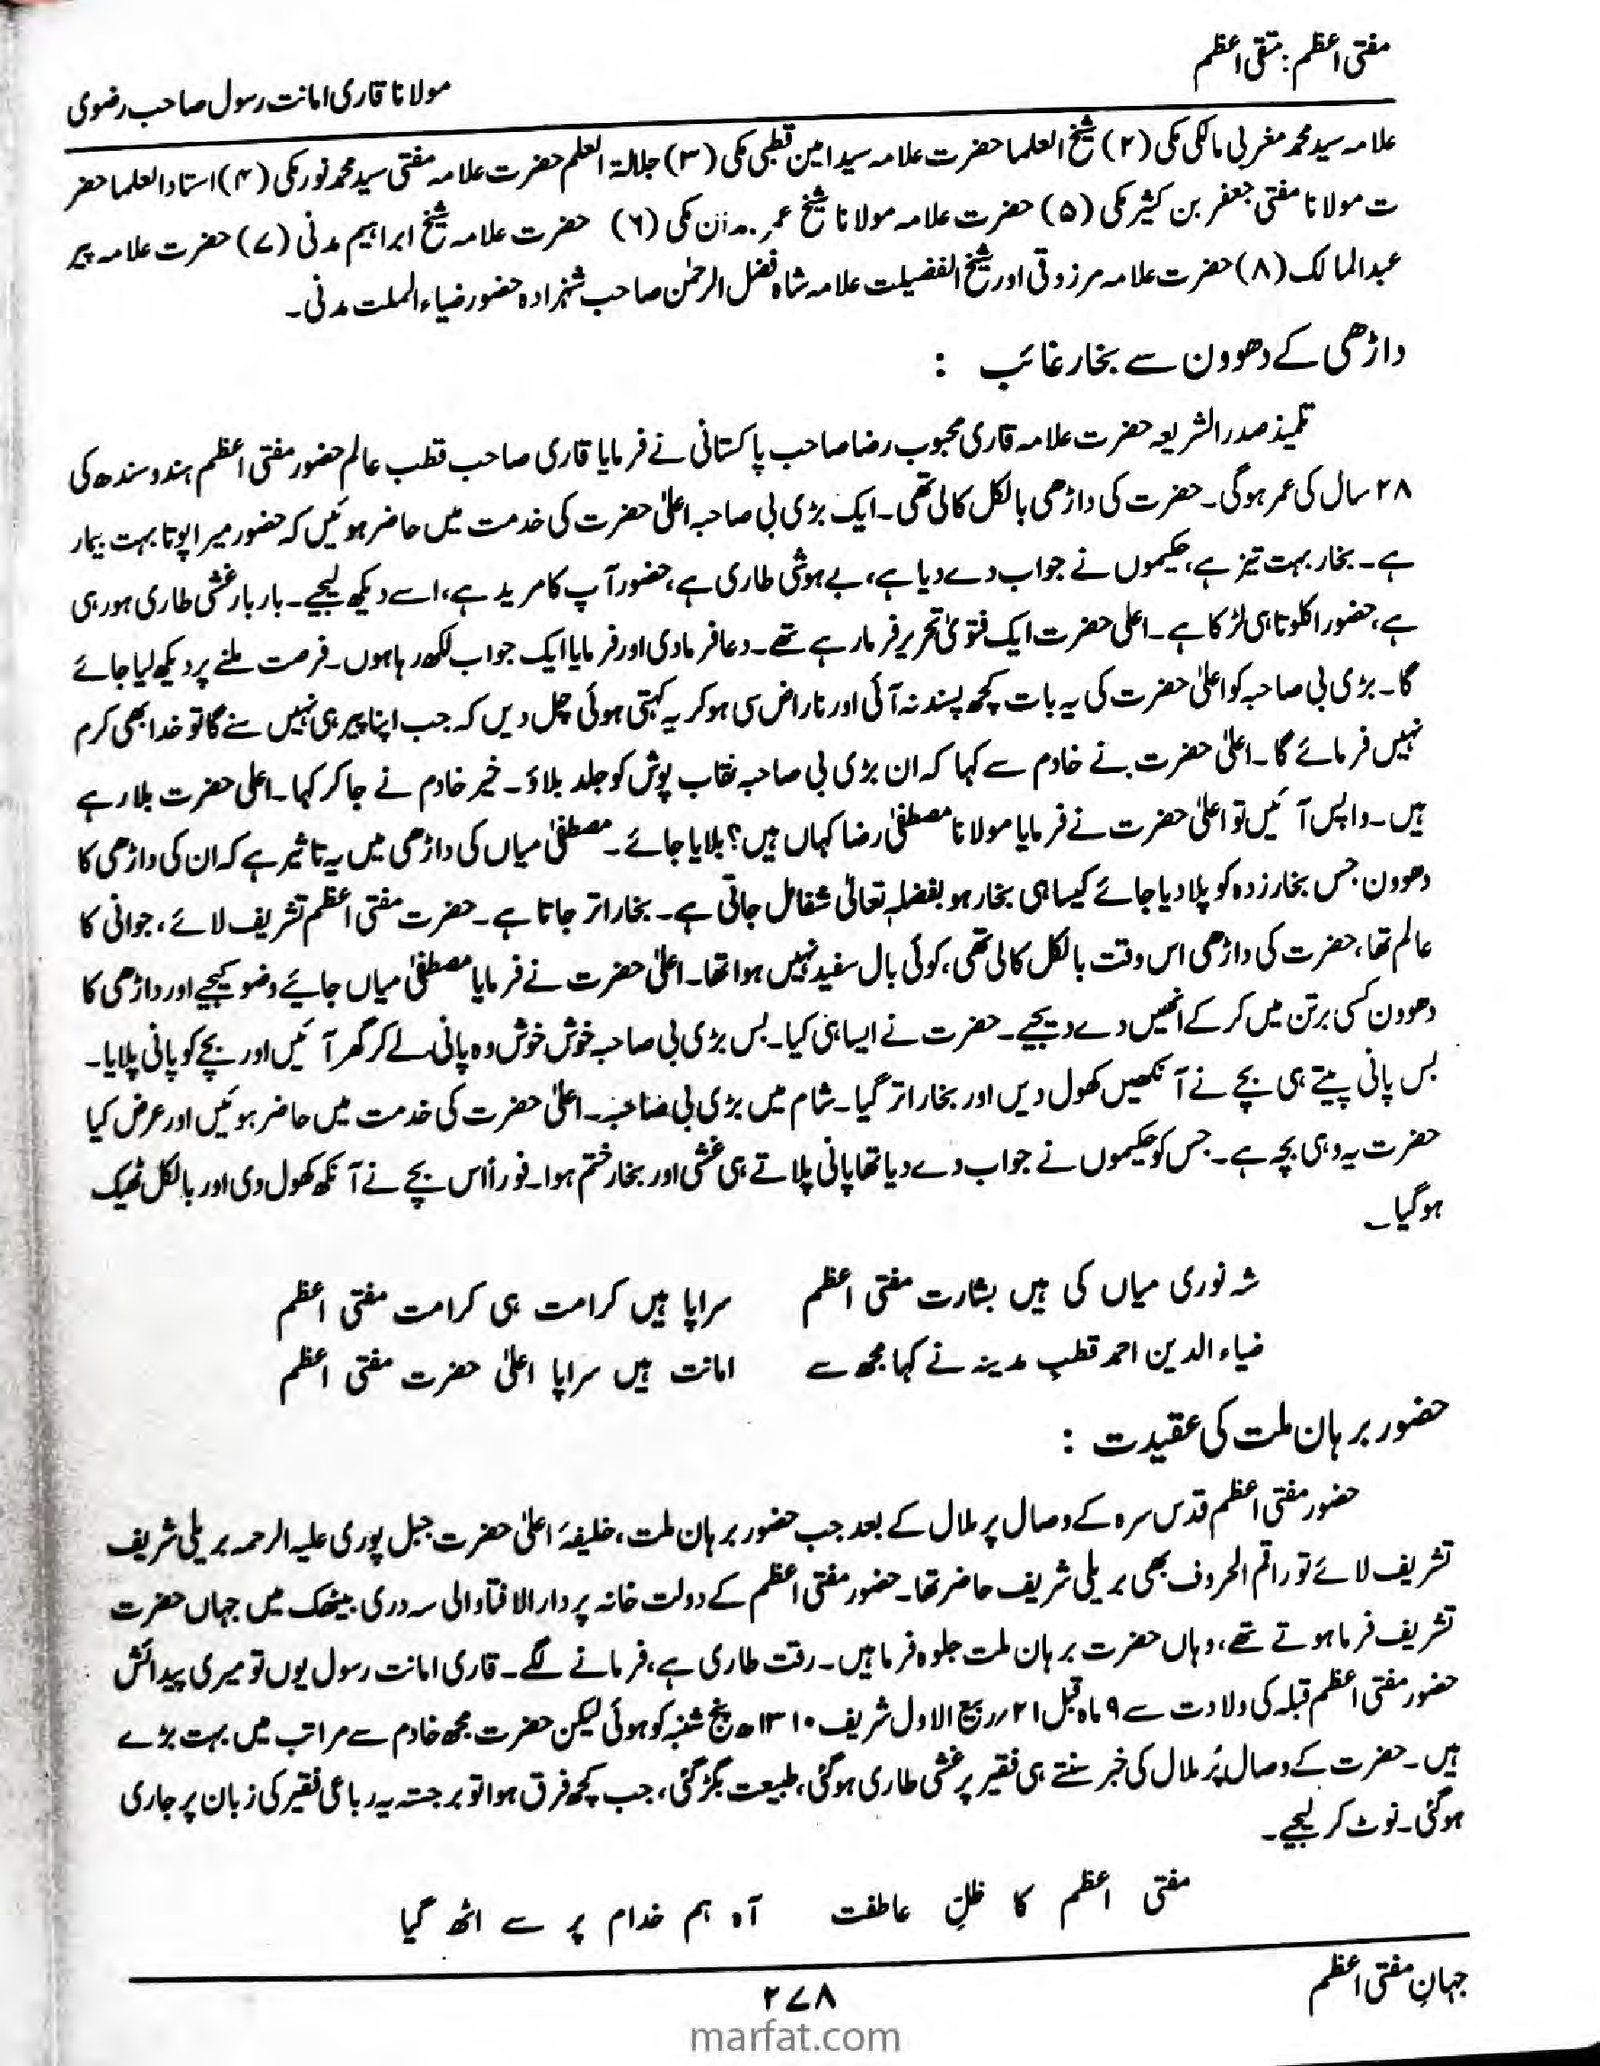 مفتی اعظم: متقی اعظم
مولانا قاری امانت رسول صاحب رضوی
علامہ سید محمد مغربی مالکی مکی (۲) شیخ العلما حضرت علامہ سید امین قطبی مکی (۳) جلالۃ العلم حضرت علامہ مفتی سید محمد نور مکی (۴) استاد العلما حضر
ت مولانا مفتی جعفر بن کثیر مکی (۵) حضرت علامہ مولانا شیخ عمر مکی (۶) حضرت علامہ شیخ ابراہیم مدنی (۷) حضرت علامہ پیر
عبدالمالک (۸) حضرت علامہ مرزوقی اور شیخ الفضیلت علامہ شاہ فضل الرحمٰن صاحب شہزادہ حضور ضیاء الملت مدنی۔
داڑھی کے دھوون سے بخار غائب :
تلمیذ صدر الشریعہ حضرت علامہ قاری محبوب رضا صاحب پاکستانی نے فرمایا قاری صاحب قطب عالم حضور مفتی اعظم ہند و سندھ کی
۲۸ سال کی عمر ہوگی۔ حضرت کی داڑھی بالکل کالی تھی۔ ایک بڑی بی صاحبہ اعلیٰ حضرت کی خدمت میں حاضر ہوئیں کہ حضور میرا پوتا بہت بیمار
ہے۔ بخار بہت تیز ہے، حکیموں نے جواب دے دیا ہے، بے ہوشی طاری ہے، حضور آپ کا مرید ہے، اسے دیکھ لیجیے۔ بار بار غشی طاری ہو رہی
ہے، حضور اکلوتا ہی لڑکا ہے۔ اعلی حضرت ایک فتویٰ تحریر فرما رہے تھے۔ دعا فرما دی اور فرمایا ایک جواب لکھ رہا ہوں۔ فرصت ملنے پر دیکھ لیا جائے
گا۔ بڑی بی صاحبہ کو اعلیٰ حضرت کی یہ بات کچھ پسند نہ آئی اور ناراض سی ہو کر یہ کہتی ہوئی چل دیں کہ جب اپنا پیر ہی نہیں سنے گا تو خدا بھی کرم
نہیں فرمائے گا۔ اعلیٰ حضرت نے خادم سے کہا کہ ان بڑی بی صاحبہ نقاب پوش کو جلد بلاؤ۔ خیر خادم نے جا کر کہا۔ اعلی حضرت بلا رہے
ہیں۔ واپس آئیں تو اعلیٰ حضرت نے فرمایا مولانا مصطفیٰ رضا کہاں ہیں؟ بلایا جائے۔ مصطفیٰ میاں کی داڑھی میں یہ تاثیر ہے کہ ان کی داڑھی کا
دھوون جس بخار زدہ کو پلا دیا جائے کیسا ہی بخار ہو بفضلہٖ تعالیٰ شفا مل جاتی ہے۔ بخار اتر جاتا ہے۔ حضرت مفتی اعظم تشریف لائے، جوانی کا
عالم تھا، حضرت کی داڑھی اس وقت بالکل کالی تھی، کوئی بال سفید نہیں ہوا تھا۔ اعلیٰ حضرت نے فرمایا مصطفیٰ میاں جائیے وضو کیجیے اور داڑھی کا
دھوون کسی برتن میں کر کے انھیں دے دیجیے۔ حضرت نے ایسا ہی کیا۔ بس بڑی بی صاحبہ خوش خوش وہ پانی لے کر گھر آئیں اور بچے کو پانی پلایا۔
بس پانی پیتے ہی بچے نے آنکھیں کھول دیں اور بخار اتر گیا۔ شام میں بڑی بی صاحبہ۔ اعلیٰ حضرت کی خدمت میں حاضر ہوئیں اور عرض کیا
حضرت یہ وہی بچہ ہے۔ جس کو حکیموں نے جواب دے دیا تھا پانی پلاتے ہی غشی اور بخار ختم ہوا۔ فوراً اس بچے نے آنکھ کھول دی اور بالکل ٹھیک
ہو گیا۔
شہ نوری میاں کی ہیں بشارت مفتی اعظم سراپا ہیں کرامت ہی کرامت مفتی اعظم
ضیاء الدین احمد قطب مدینہ نے کہا مجھ سے امانت ہیں سراپا اعلیٰ حضرت مفتی اعظم
حضور برہان ملت کی عقیدت :
حضور مفتی اعظم قدس سرہ کے وصال پر ملال کے بعد جب حضور برہان ملت، خلیفۂ اعلیٰ حضرت جبل پوری علیہ الرحمہ بریلی شریف
تشریف لائے تو راقم الحروف بھی بریلی شریف حاضر تھا۔ حضور مفتی اعظم کے دولت خانہ پر دار الافتا والی سہ دری بیٹھک میں جہاں حضرت
تشریف فرما ہوتے تھے، وہاں حضرت برہان ملت جلوہ فرما ہیں۔ رقت طاری ہے، فرمانے لگے۔ قاری امانت رسول یوں تو میری پیدائش
حضور مفتی اعظم قبلہ کی ولادت سے ۹ ماہ قبل ۲۱؍ ربیع الاول شریف ۱۳۱۰ھ پنج شنبہ کو ہوئی لیکن حضرت مجھ خادم سے مراتب میں بہت بڑے
ہیں۔ حضرت کے وصال پُر ملال کی خبر سنتے ہی فقیر پر غشی طاری ہوگئی، طبیعت بگڑ گئی، جب کچھ فرق ہوا تو برجستہ یہ رباعی فقیر کی زبان پر جاری
ہوگئی۔ نوٹ کر لیجیے۔
مفتی اعظم کا ظلِ عاطفت آہ ہم خدام پر سے اٹھ گیا
جہانِ مفتی اعظم
۲۷۸
marfat.com